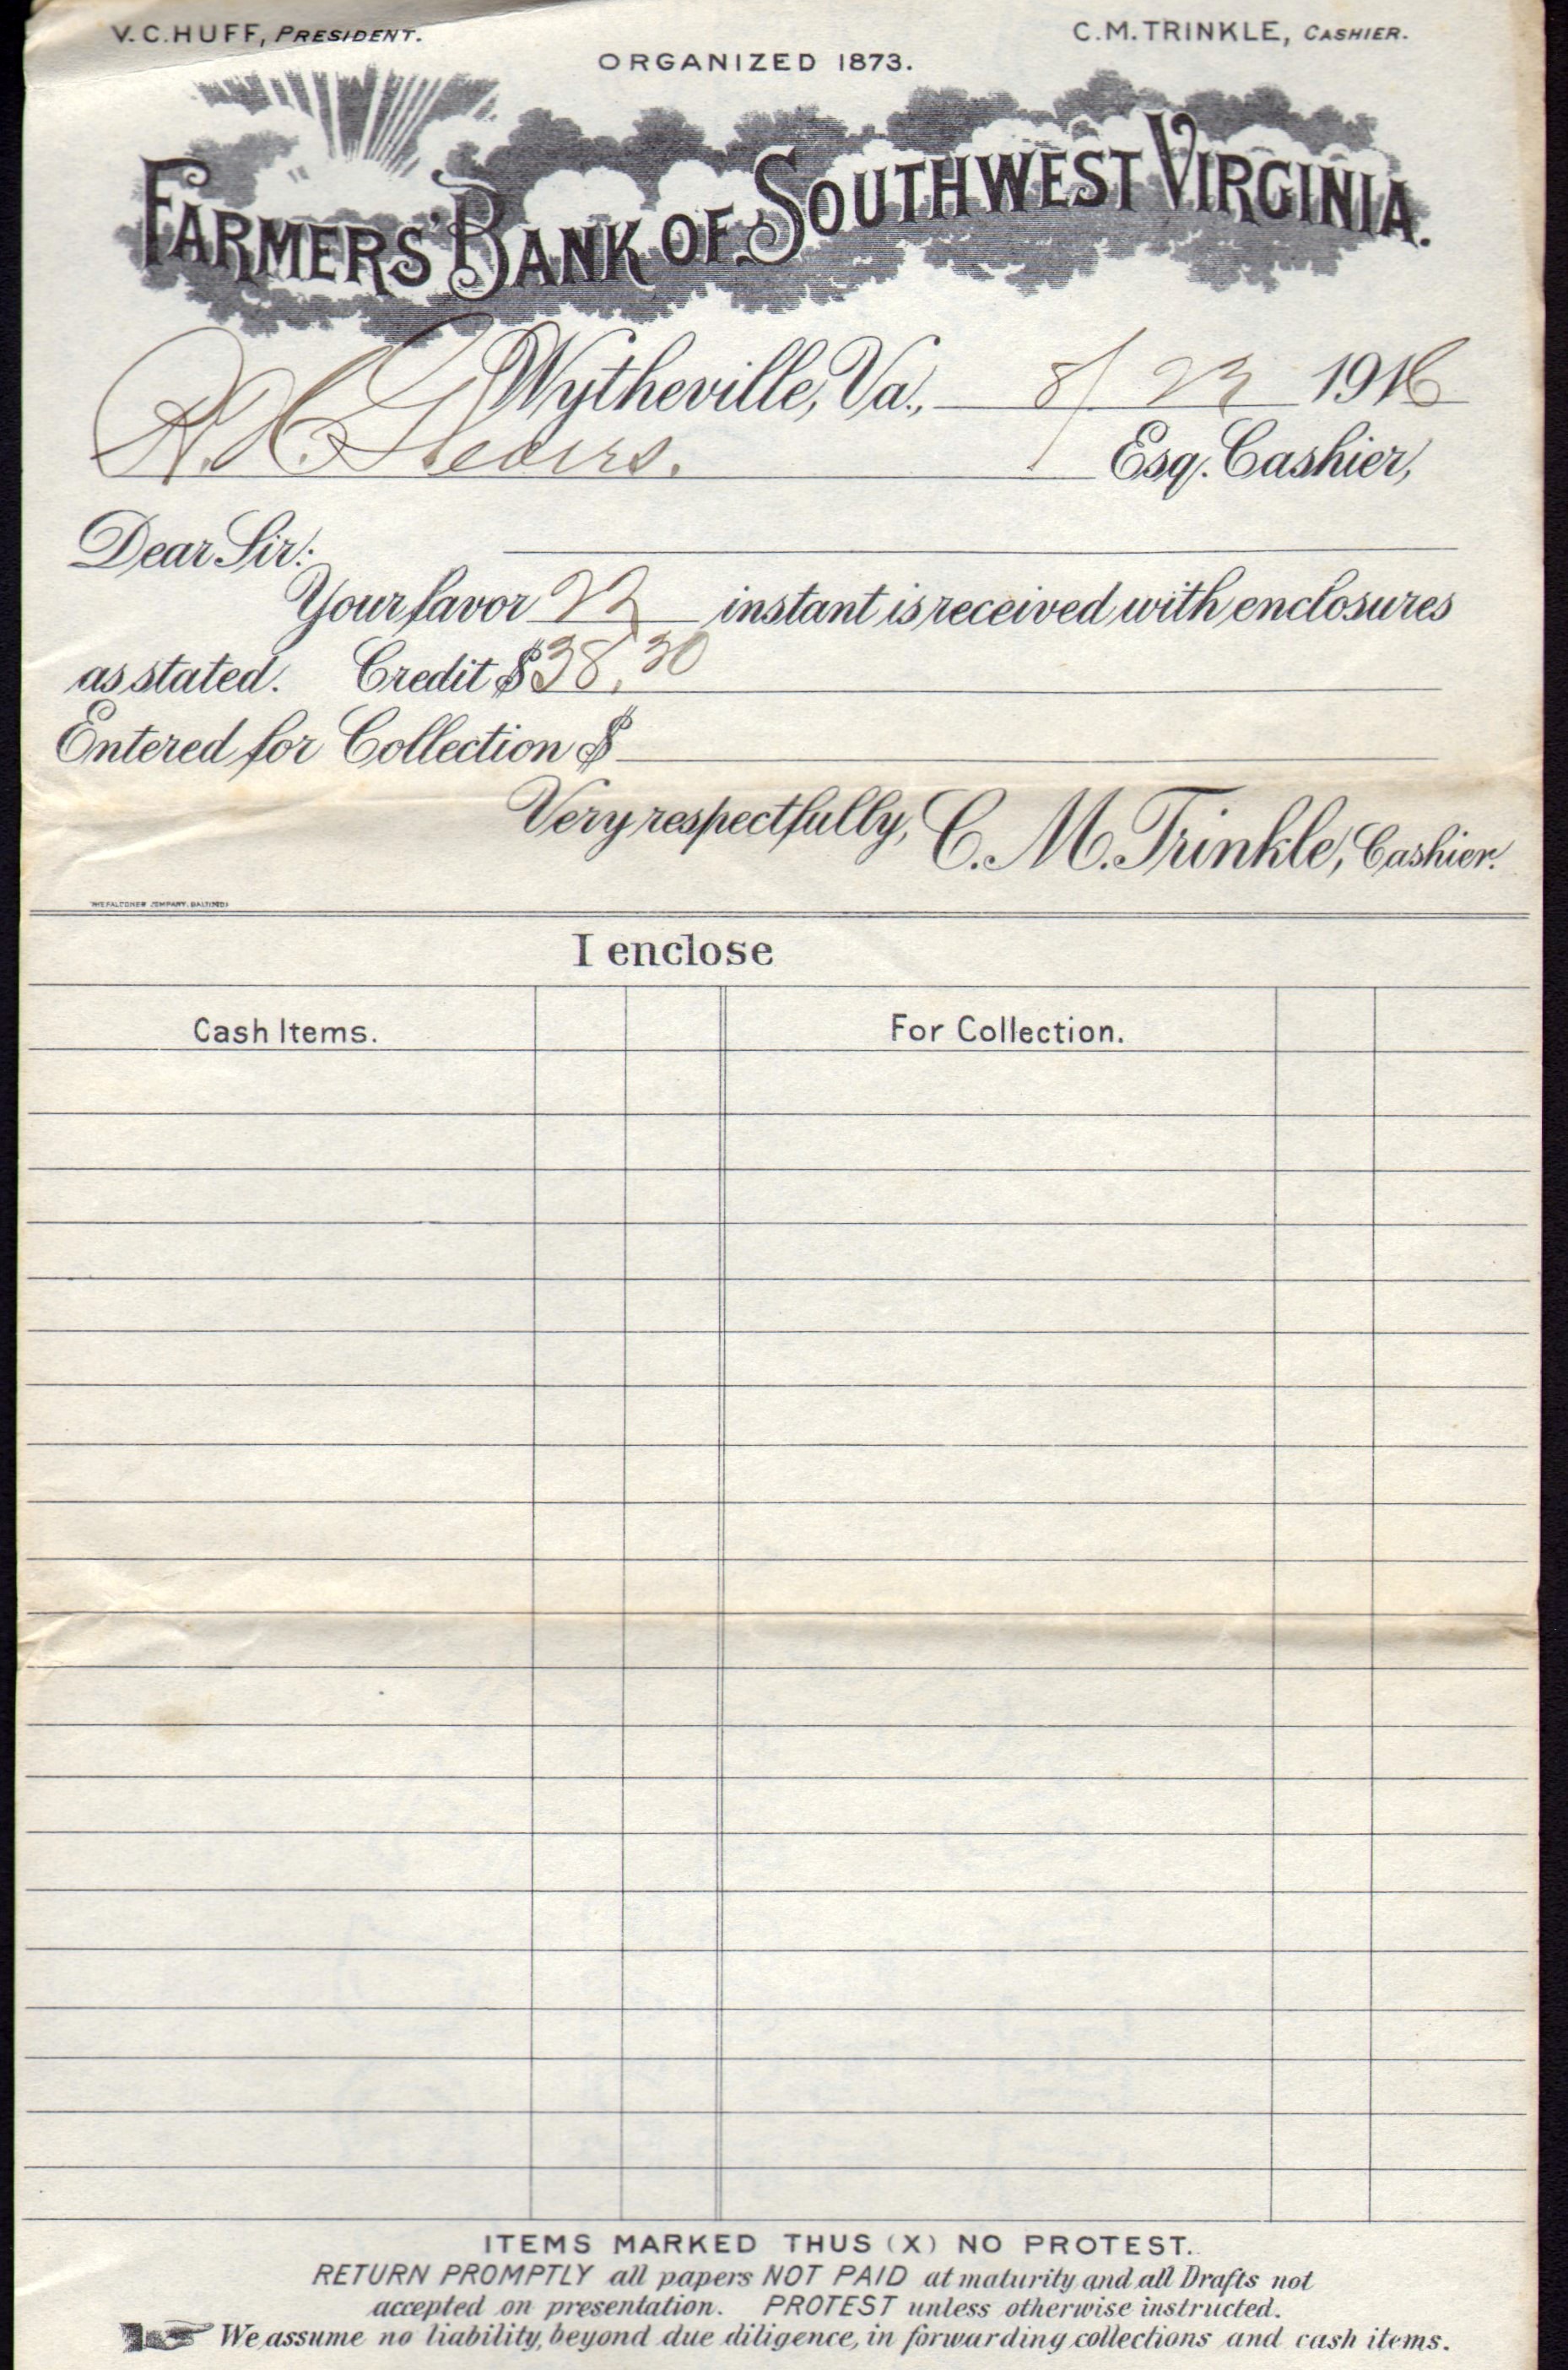 V. C. HUFF, PRESIDENT. C. M. TRINKLE, CASHIER.
ORGANIZED 1873.
FARMERS' BANK OF SOUTHWEST VIRGINIA.
Wytheville, Va., 8/23 1916
Esq. Cashier,
Dear Sir:
Your favor 22 instant is received with enclosures
as stated. Credit $ 38.30
Entered for Collection $
Very respectfully, C. M. Trinkle, Cashier.
THE FALCONER COMPANY, BALTIMORE
I enclose
Cash Items. For Collection.
ITEMS MARKED THUS (X) NO PROTEST.
RETURN PROMPTLY all papers NOT PAID at maturity and all Drafts not
accepted on presentation. PROTEST unless otherwise instructed.
We assume no liability, beyond due diligence, in forwarding collections and cash items.